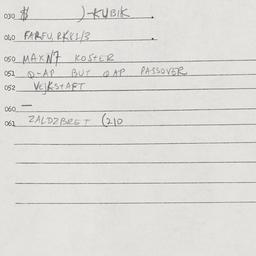 030 $ )-KUBIK.
040 FARFU, RKK1/3.
050 MAXN7 KOSTER
051 Q-AP BUT QAP PASSOVER
052 VEJKSTAFT
060 —
061 ZALDZBRET (210